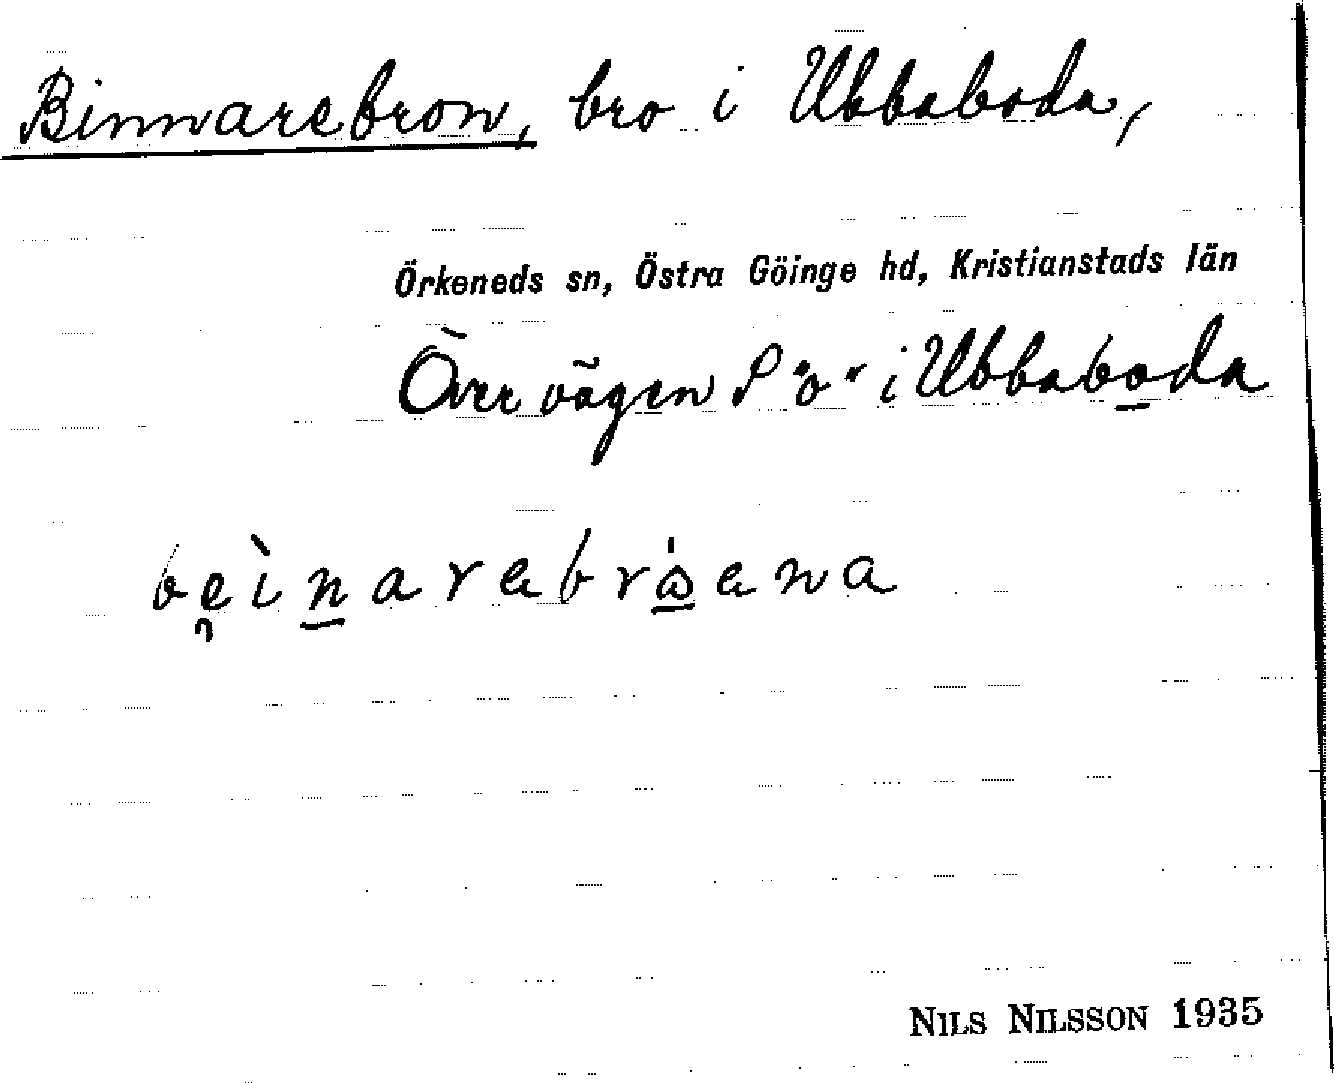 Binnarebron, bro i Ubbaboda,
Örkeneds sn, Östra Göinge hd, Kristianstads län
Över vägen S ö i Ubbaboda
beìnarabrånana
NILS NILSSON 1935